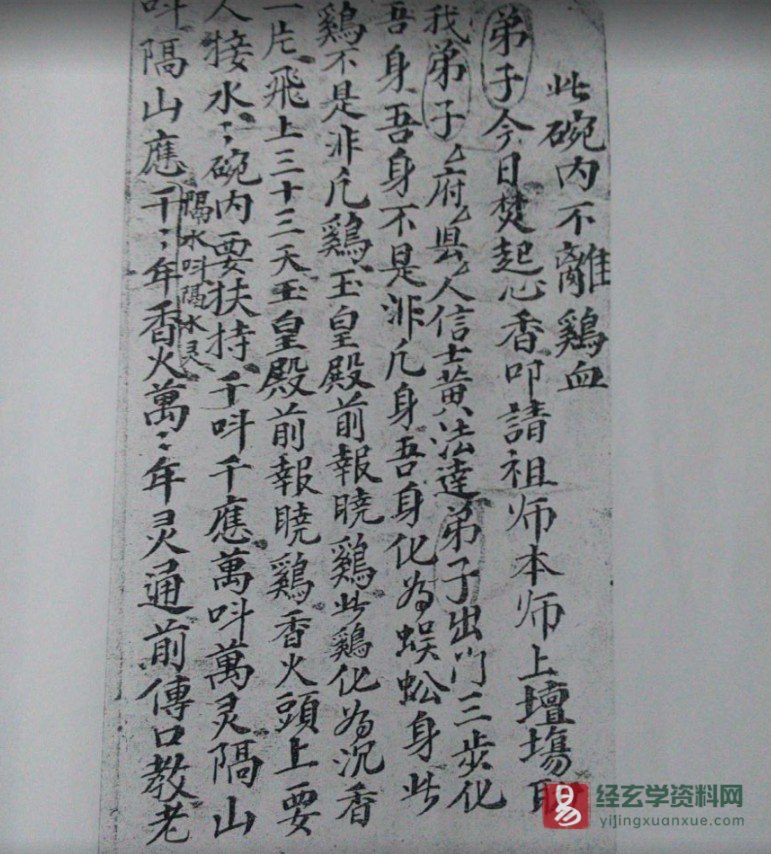 此碗内不離鷄血
弟子今日焚起心香叩請祖师本师上壇場
我弟子厶府厶县厶人信士黄法達弟子出门三步化
吾身吾身不是非凡身吾身化为蜈蚣身此
鷄不是非凡鷄玉皇殿前報曉鷄此鷄化为沉香
一片飛上三十三天玉皇殿前報曉鷄香火頭上要
人接水〻碗内要扶持千呌千應萬呌萬灵隔山
隔水呌隔水灵
呌隔山應千〻年香火萬〻年灵通前傳口教老
易
经玄学资料网
yijingxuanxue.com